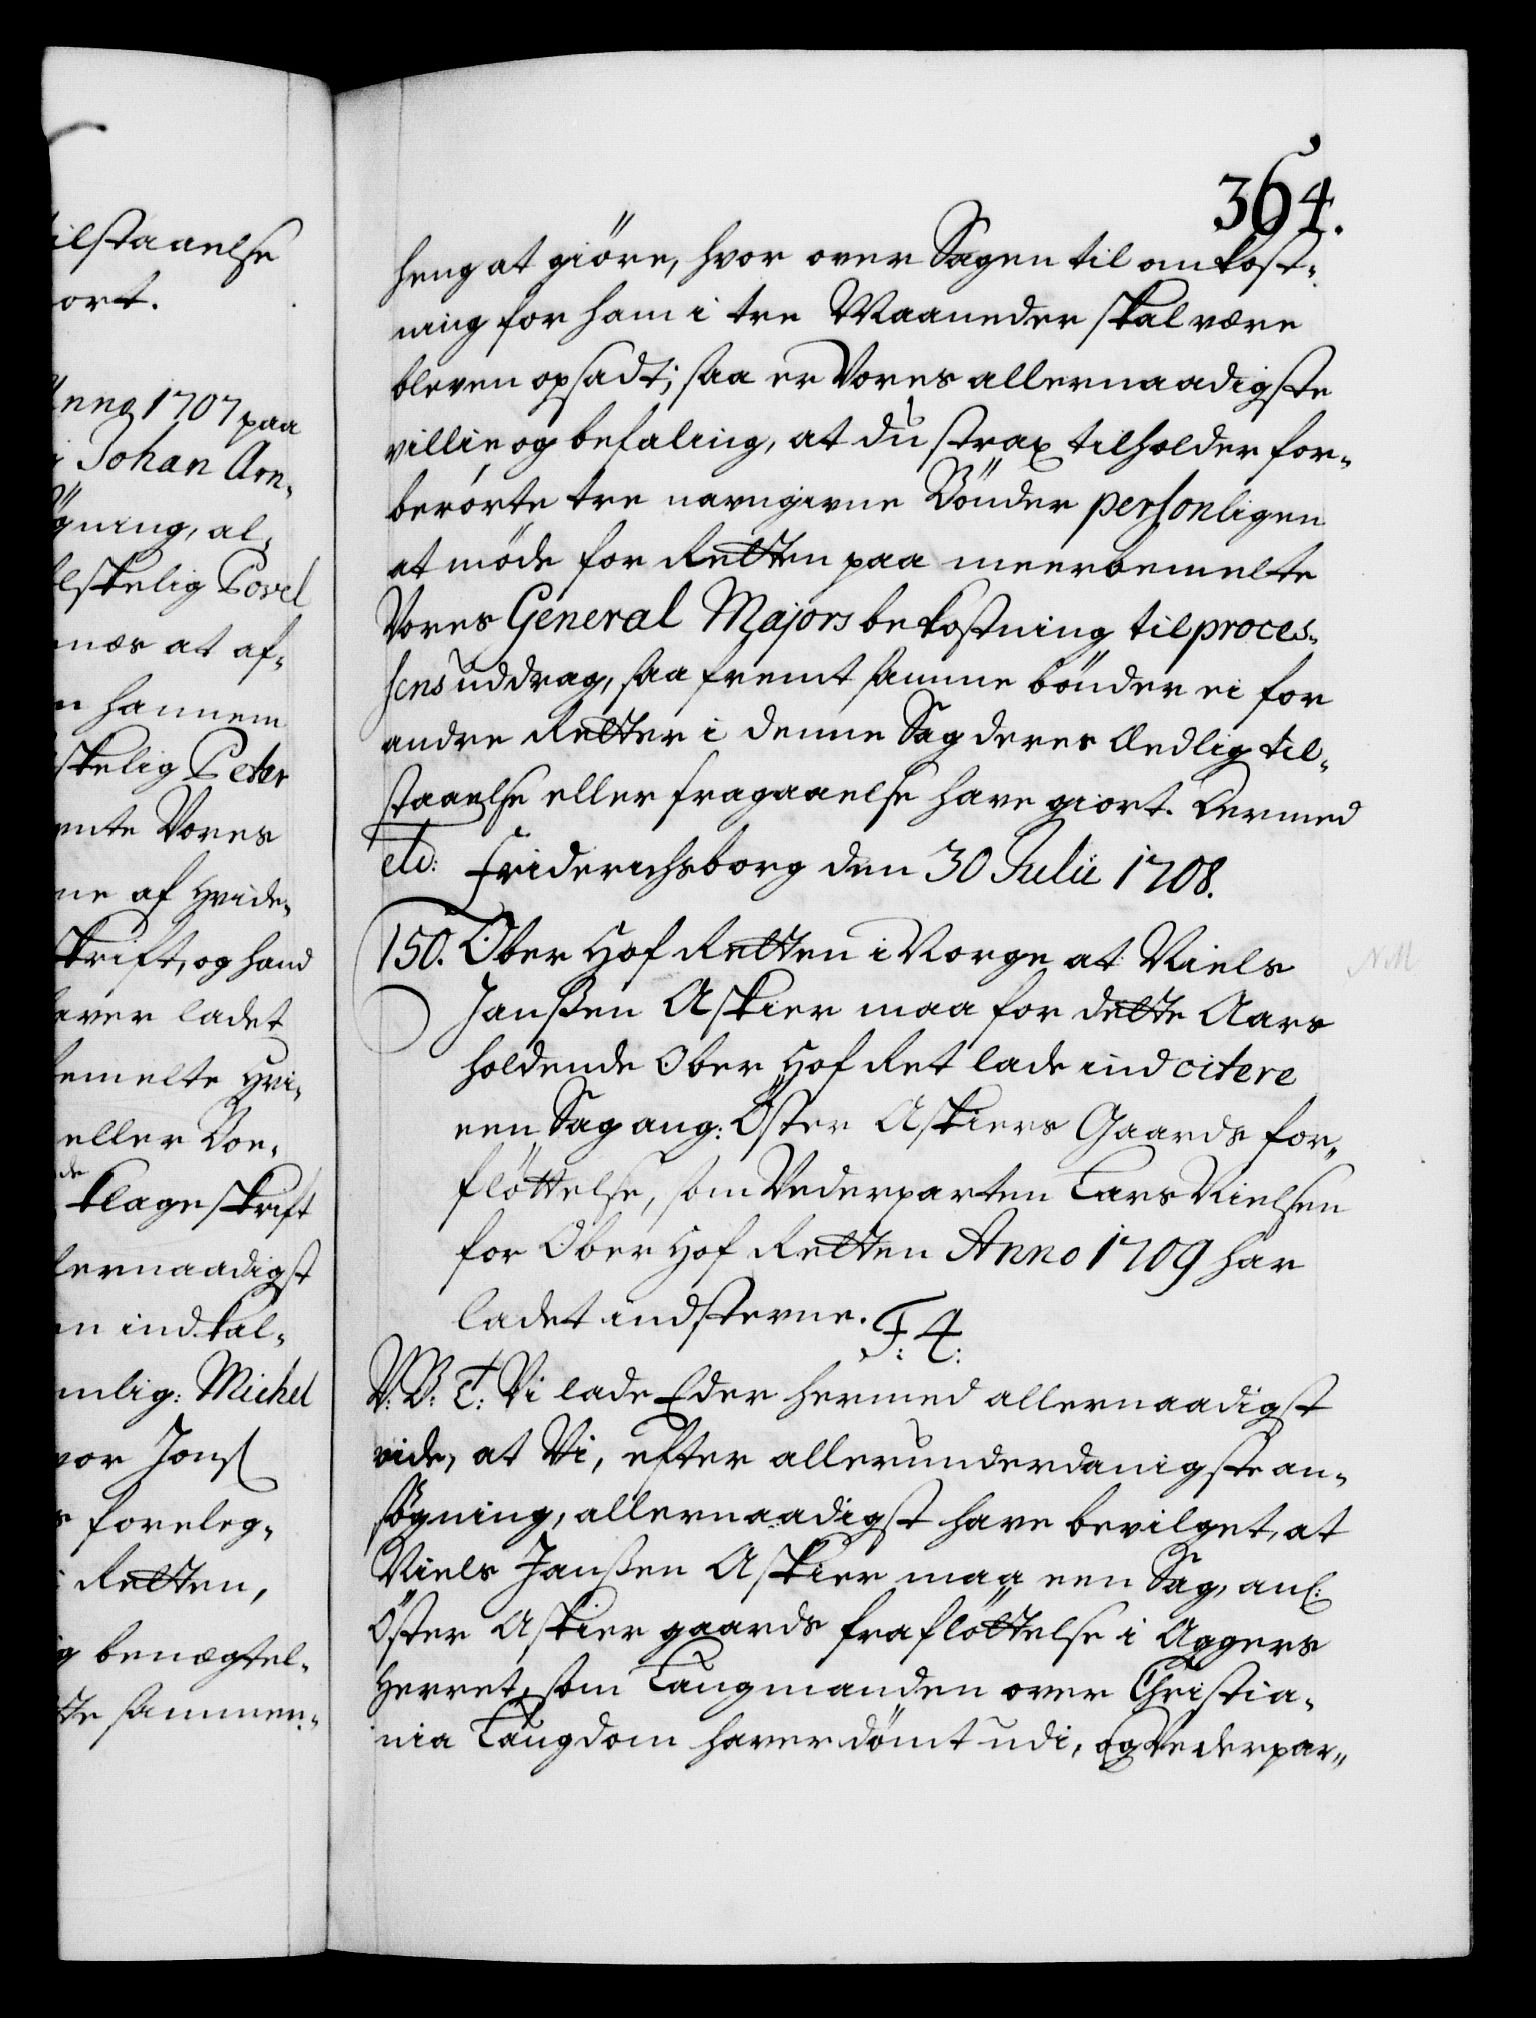 ilstaaelse
ort.
Anno 1707 paa
i Johan Arn-
øgning, al-
elskelig Povel
nær at af-
n hannem
skelig Peter
nte Vores
ne af Hvide-
skrift, og hand
aver ladet
bemelte Hvi-
eller Boe-
de
klageskrift
lernaadigst
en indkal-
mlig: Michel
vor Jonſ
s foreleg-
i Retten,
ig benægtel-
te sammen-
364.
heng at giöre, hvor over Sagen til omkost-
ning for ham i tre Maaneder skal være
bleven opsadt; saa er Vores allernaadigste
villie og befaling, at du strax tilholder for-
berörte tre navngivne Bönder personligen
at möde for Retten paa meerbemelte
Vores General Majors bekostning til proces-
sens uddrag, saa fremt samme bönder ei for
andre Retter i denne Sag deres Eedlig til-
staaelse eller fragaaelse have giort. Dermed
etc: Friderichsborg den 30 Julii 1708.
150. Ober Hof Retten i Norge at Niels
Janßen Askier maa for dette Aars
holdende Ober Hof Ret lade ind citere
een Sag ang: Öster Askiers Gaards for-
flöttelse, som Vederparten Lars Nielsen
for Ober Hof Retten Anno 1709 har
ladet indsterne. F: 4:
V: B: T: Vi lade Eder hermed allernaadigst
vide, at Vi, efter allerunderdanigste an-
søgning, allernaadigst have bevilget, at
Niels Janßen Askier maa een Sag, anl:
Öster Askier gaards fraflöttelse i Aggers
Herret, som Laugmanden over Christia-
nia Laugdom haver dömt udi, og Vederpar-
N.M